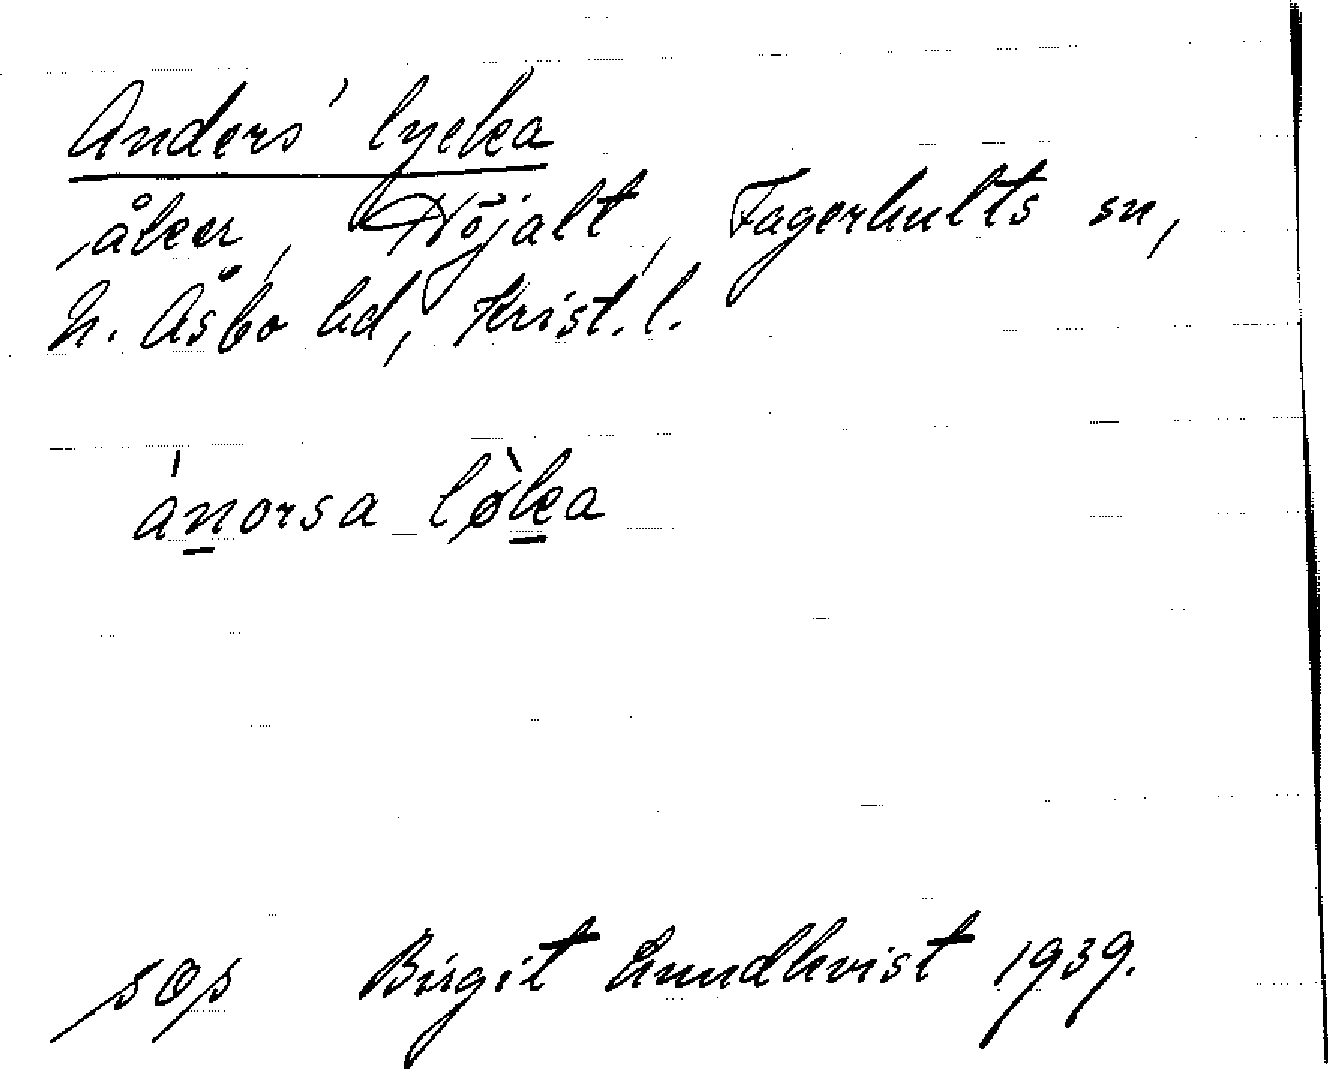 Anders' lycka
åker, Höjalt, Fagerhults sn,
N. Åsbo hd, Krist. l.
ánorsa lø̀ka
sop Birgit Lundkvist 1939.